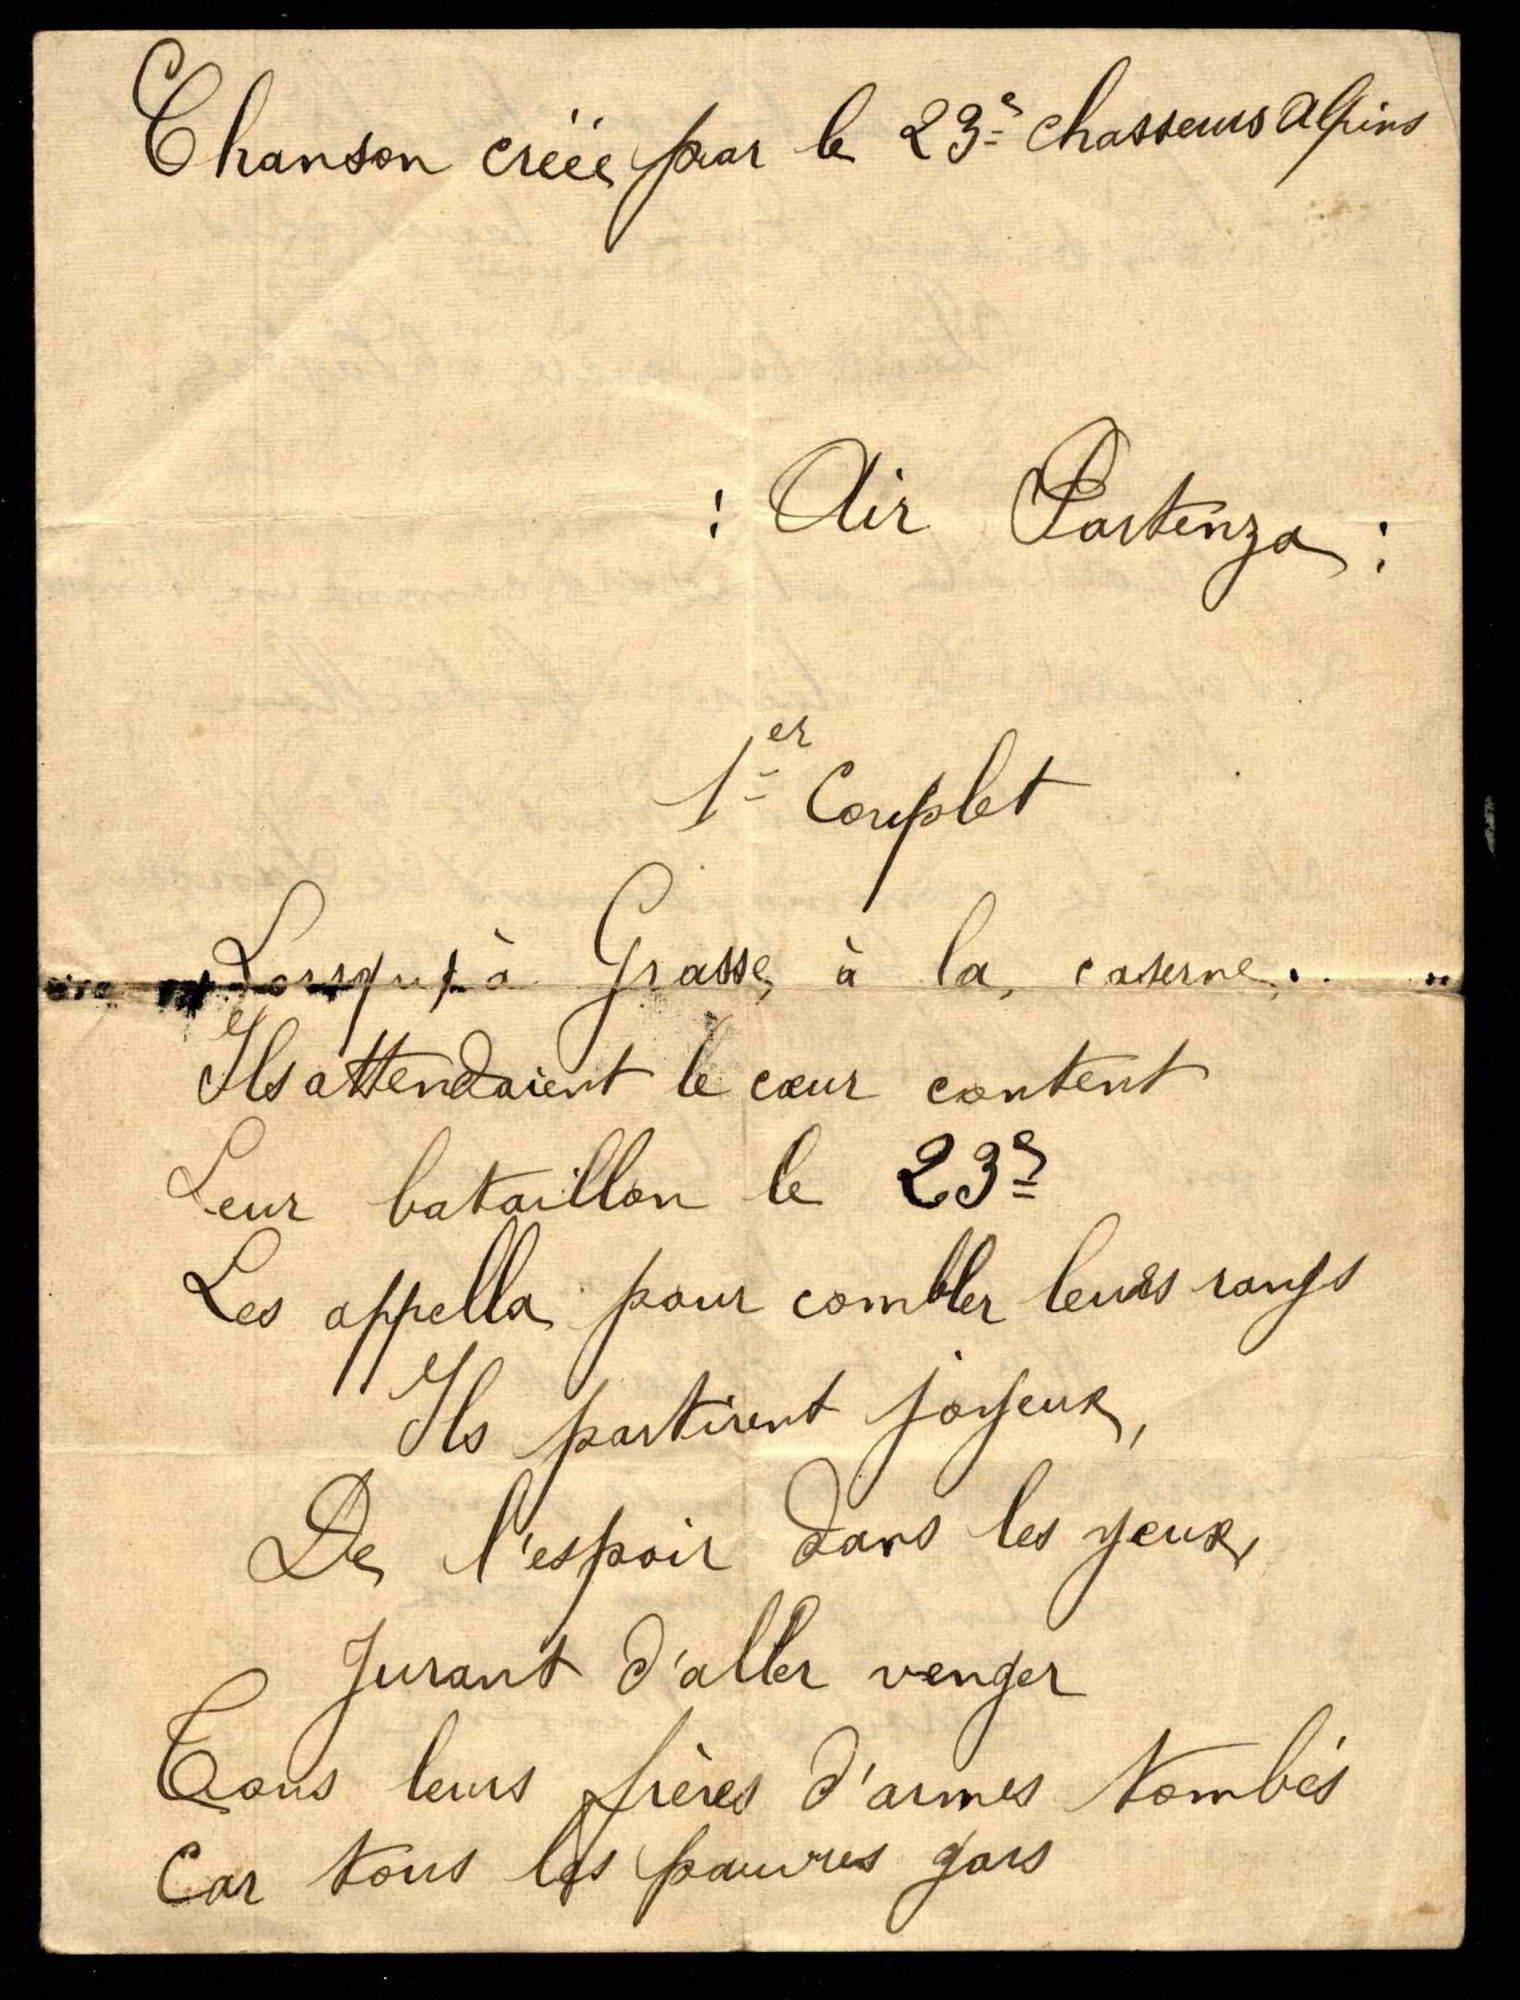 Chanson créée par le 23e chasseurs alpins
: Air Partenza :
1er Couplet
Lorsqu'à Grasse, à la caserne..
Ils attendaient le cœur content
Leur bataillon le 23e
Les appella pour combler leurs rangs
Ils partirent joyeux,
De l'espoir dans les yeux,
Jurant d'aller venger
Tous leurs frères d'armes tombés
Car tous les pauvres gars